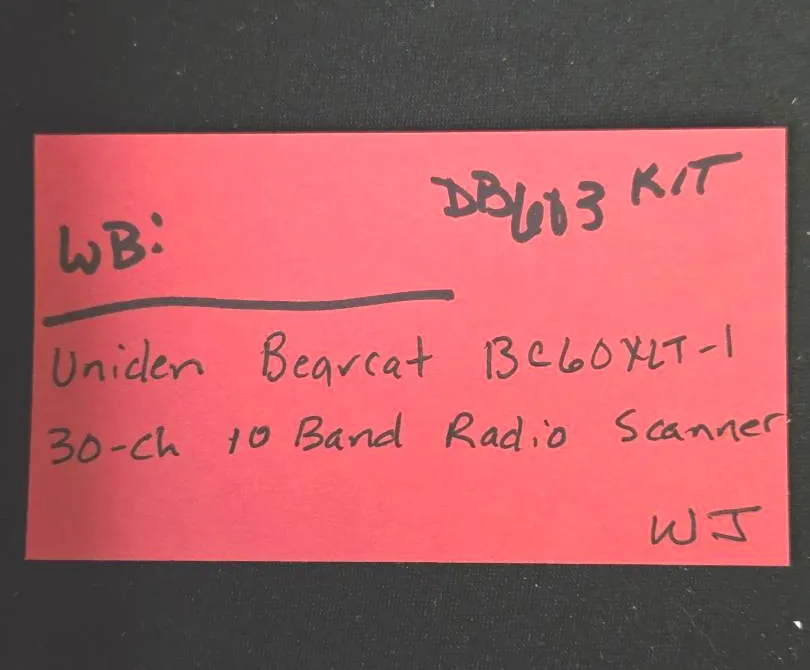 DB603 KIT
WB:
Uniden Bearcat BC60XLT-1
30-ch 10 Band Radio Scanner
WJ